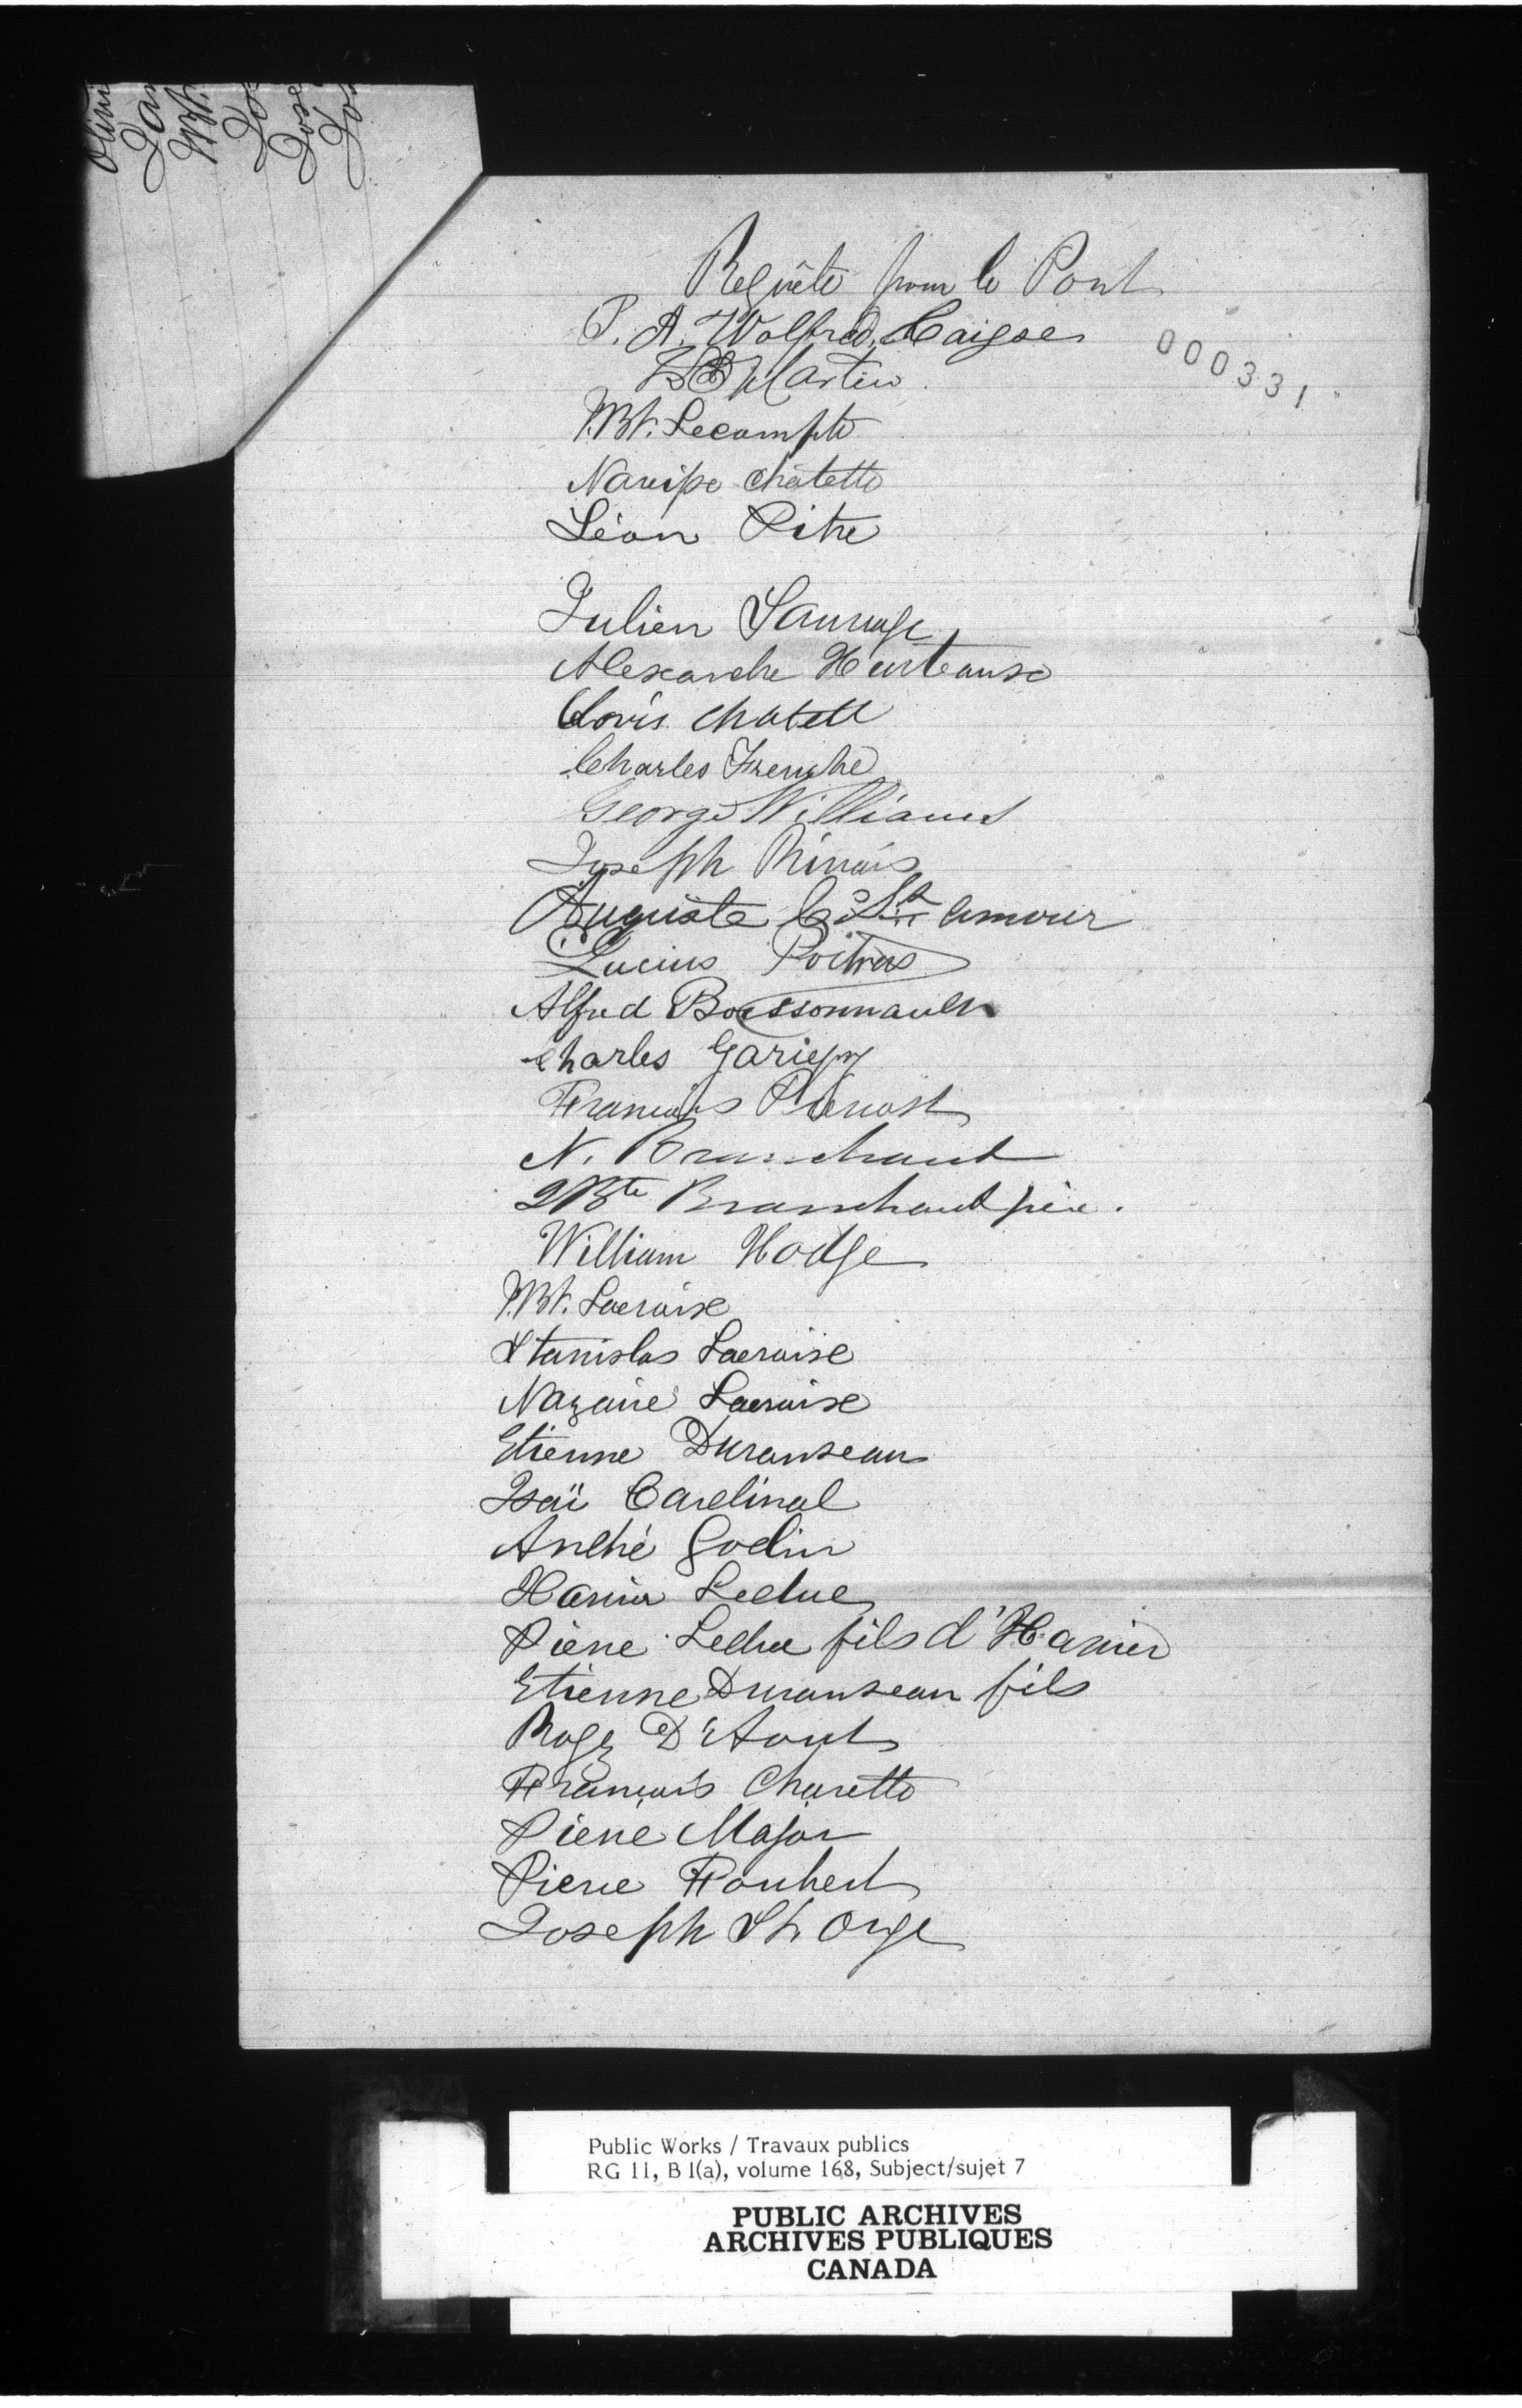 Requête pour le Pont
P. A. Wolfred
000331
Martin
J.Bt. Lecompte
Narcisse Châtette
Léon Pitre
Julien Sauvage
Alexandre Hurteause
Clovis Chatell
Charles Frenche
George Williams
Joseph
Auguste St amour
Lucius Poitras
Alfred Boissonnault
Charles Gariepy
François Prenost
N. Branchaud
JBte Branchaud père.
William Hodge
J.Bt. Lacroise
Stanislas Lacroise
Nazaire Lacroise
Etienne Duranseau
Isaï Cardinal
André Godin
Leduc
Pierre Leduc fils d'
Etienne Duranseau fils
D'Aout
François Charette
Pierre Major
Pierre Foubert
Joseph St. Onge
Public Works / Travaux publics
RG 11, B 1(a), volume 168, Subject/sujet 7
PUBLIC ARCHIVES
ARCHIVES PUBLIQUES
CANADA